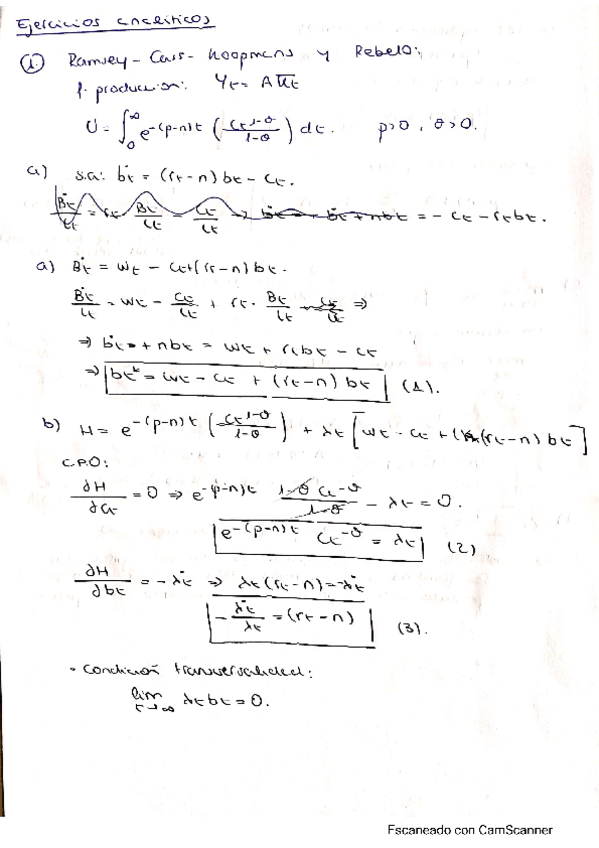 Ejercicios analíticos
① Ramsey-Cass-Koopmans y Rebelo:
f. producción: Yt = A Kt
U = ∫₀^∞ e^-(ρ-n)t (Ct^1-θ / 1-θ) dt. ρ>0, θ>0.
a) s.a: ḃt = (rt-n) bt - Ct.
= - Ct - rt bt.
a) Ḃt = wt - Ct + (rt-n) bt.
Ḃt/Lt = wt - Ct/Lt + rt · Bt/Lt ⇒
⇒ ḃt + nbt = wt + rt bt - ct
⇒ ḃt = wt - ct + (rt-n) bt (1).
b) H = e^-(ρ-n)t (Ct^1-θ / 1-θ) + λt [wt - ct + (rt-n) bt]
C.P.O:
∂H/∂Ct = 0 ⇒ e^-(ρ-n)t 1-θ Ct^-θ / 1-θ - λt = 0.
e^-(ρ-n)t Ct^-θ = λt (2)
∂H/∂bt = -λ̇t ⇒ λt (rt-n) = -λ̇t
- λ̇t/λt = (rt-n) (3).
- Condición transversalidad:
lim t→∞ λt bt = 0.
Escaneado con CamScanner